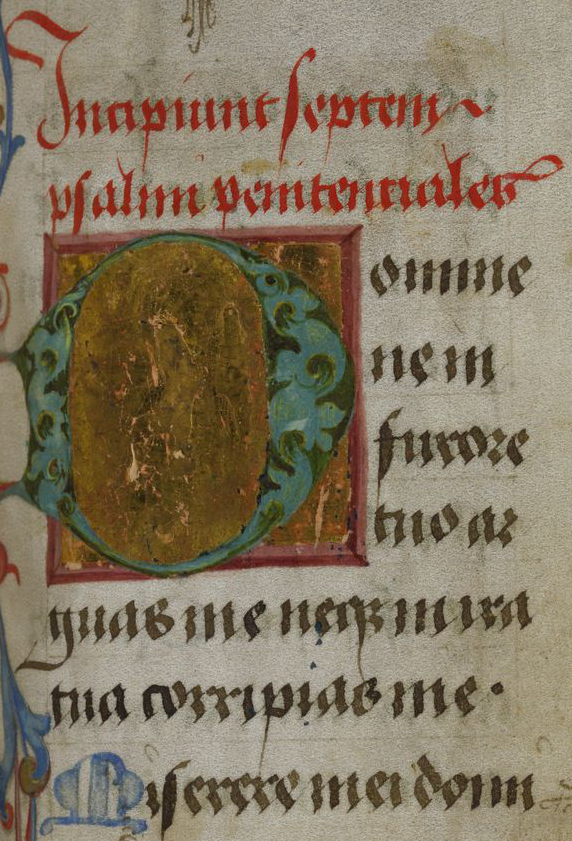 Incipiunt septem
psalmi penitentiales
Domine
ne in
furore
tuo ar
guas me neqz in ira
tua corripias me.
Miserere mei domi